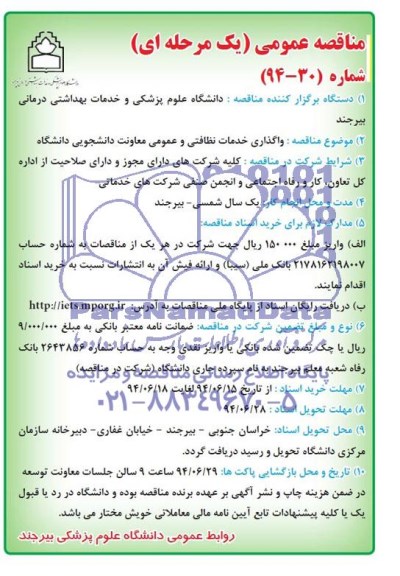 مناقصه عمومی (یک مرحله ای)
شماره (۳۰-۹۴)
۱) دستگاه برگزار کننده مناقصه : دانشگاه علوم پزشکی و خدمات بهداشتی درمانی
بیرجند
۲) موضوع مناقصه : واگذاری خدمات نظافتی و عمومی معاونت دانشجویی دانشگاه
۳) شرایط شرکت در مناقصه : کلیه شرکت های دارای مجوز و دارای صلاحیت از اداره
کل تعاون، کار و رفاه اجتماعی و انجمن صنفی شرکت های خدماتی
۴) مدت و محل انجام کار: یک سال شمسی- بیرجند
۵) مدارک لازم برای خرید اسناد مناقصه:
الف) واریز مبلغ ۱۵۰ ۰۰۰ ریال جهت شرکت در هر یک از مناقصات به شماره حساب
۲۱۷۸۱۶۲۱۹۸۰۰۷ بانک ملی (سیبا) و ارائه فیش آن به انتشارات نسبت به خرید اسناد
اقدام نمایند.
ب) دریافت رایگان اسناد از پایگاه ملی مناقصات به آدرس: http://iets.mporg.ir
۶) نوع و مبلغ تضمین شرکت در مناقصه: ضمانت نامه معتبر بانکی به مبلغ ۹/۰۰۰/۰۰۰
ریال یا چک تضمین شده بانکی یا واریز نقدی وجه به حساب شماره ۲۶۴۳۸۵۶ بانک
رفاه شعبه معلم بیرجند به نام سپرده جاری دانشگاه (شرکت در مناقصه)
۷) مهلت خرید اسناد : از تاریخ ۹۴/۰۶/۱۵ لغایت ۹۴/۰۶/۱۸
۸) مهلت تحویل اسناد : ۹۴/۰۶/۲۸
۹) محل تحویل اسناد: خراسان جنوبی - بیرجند - خیابان غفاری- دبیرخانه سازمان
مرکزی دانشگاه تحویل و رسید دریافت گردد.
۱۰) تاریخ و محل بازگشایی پاکت ها: ۹۴/۰۶/۲۹ ساعت ۹ سالن جلسات معاونت توسعه
در ضمن هزینه چاپ و نشر آگهی بر عهده برنده مناقصه بوده و دانشگاه در رد یا قبول
یک یا کلیه پیشنهادات تابع آیین نامه مالی معاملاتی خویش مختار می باشد.
روابط عمومی دانشگاه علوم پزشکی بیرجند
ParsNamadData
پایگاه اطلاع رسانی مناقصه و مزایده
۰۲۱-۸۸۳۴۹۶۷۰-۵